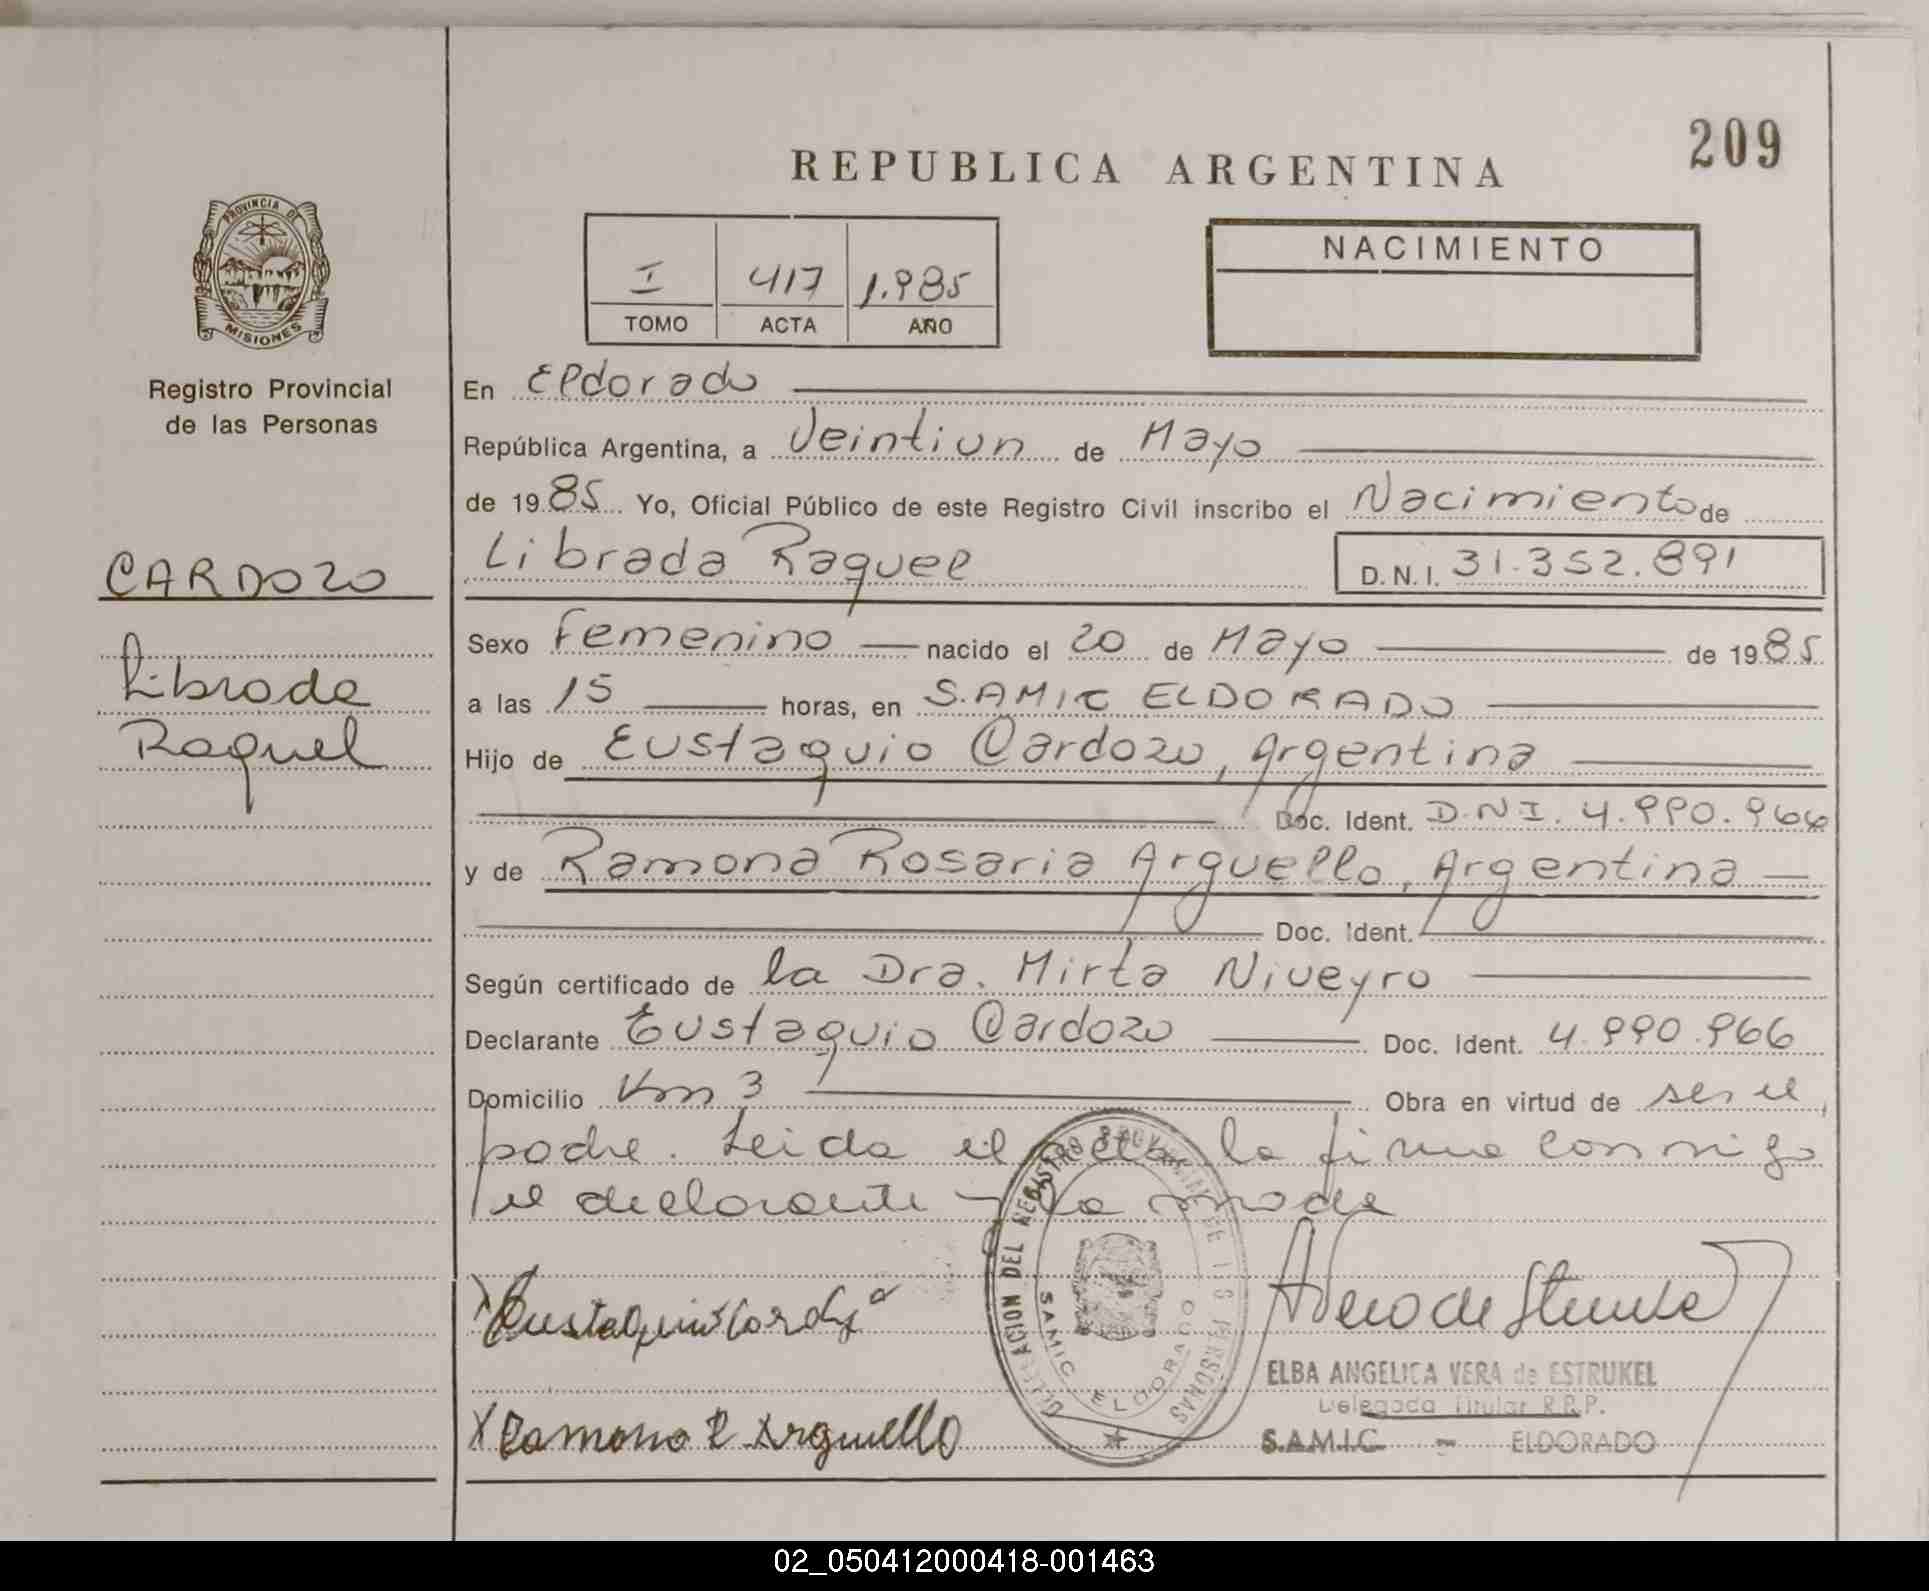 209
REPUBLICA ARGENTINA
PROVINCIA DE
MISIONES
Registro Provincial
de las Personas
CARDOZO
Librada
Raquel
I 417 1.985
TOMO ACTA AÑO
NACIMIENTO
En Eldorado
República Argentina, a Veintiun de Mayo
de 1985 Yo, Oficial Público de este Registro Civil inscribo el Nacimiento de
Librada Raquel D.N.I. 31.352.891
Sexo Femenino nacido el 20 de Mayo de 1985
a las 15 horas, en S.AMIC ELDORADO
Hijo de Eustaquio Cardozo, Argentina
Doc. Ident. D.N.I. 4.990.966
y de Ramona Rosaria Arguello, Argentina
Doc. Ident.
Según certificado de la Dra. Mirta Niveyro
Declarante Eustaquio Cardozo Doc. Ident. 4.990.966
Domicilio Km 3 Obra en virtud de ser el
padre. Leida el acta, la firma conmigo
el declarante y la madre
Eustaquio Cardozo
DELEGACION DEL REGISTRO PROVINCIAL DE LAS PERSONAS
SAMIC ELDORADO
ELBA ANGELICA VERA de ESTRUKEL
Delegada Titular R.P.P.
X Ramona R Arguello
S.A.M.I.C. - ELDORADO
02_050412000418-001463